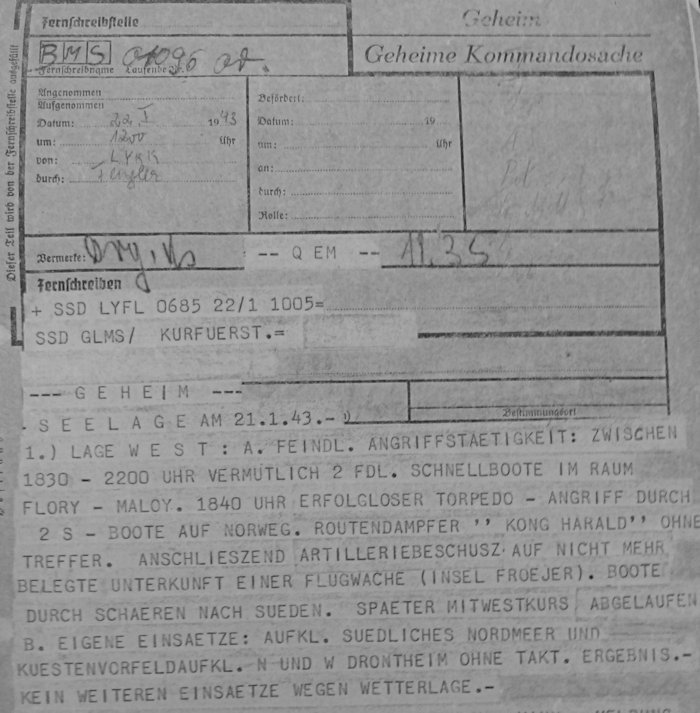 Fernschreibstelle
Geheim
Geheime Kommandosache
BMS 01096
Fernschreibname Laufende Nr.
Dieser Teil wird von der Fernschreibstelle ausgefüllt
Angenommen
Aufgenommen
Datum: 22 I 1943
um: 1200 Uhr
von:
durch:
Befördert:
Datum: 19
um: Uhr
an:
durch:
Rolle:
Vermerke: -- Q EM -- 11.35
Fernschreiben
+ SSD LYFL 0685 22/1 1005=
SSD GLMS/ KURFUERST.=
--- G E H E I M ---
Bestimmungsort
- S E E L A G E AM 21.1.43.-
1.) LAGE W E S T : A. FEINDL. ANGRIFFSTAETIGKEIT: ZWISCHEN
1830 - 2200 UHR VERMUTLICH 2 FDL. SCHNELLBOOTE IM RAUM
FLORY - MALOY. 1840 UHR ERFOLGLOSER TORPEDO - ANGRIFF DURCH
2 S - BOOTE AUF NORWEG. ROUTENDAMPFER '' KONG HARALD'' OHNE
TREFFER. ANSCHLIESZEND ARTILLERIEBESCHUSZ AUF NICHT MEHR
BELEGTE UNTERKUNFT EINER FLUGWACHE (INSEL FROEJER). BOOTE
DURCH SCHAEREN NACH SUEDEN. SPAETER MITWESTKURS ABGELAUFEN
B. EIGENE EINSAETZE: AUFKL. SUEDLICHES NORDMEER UND
KUESTENVORFELDAUFKL. N UND W DRONTHEIM OHNE TAKT. ERGEBNIS.-
KEIN WEITEREN EINSAETZE WEGEN WETTERLAGE.-